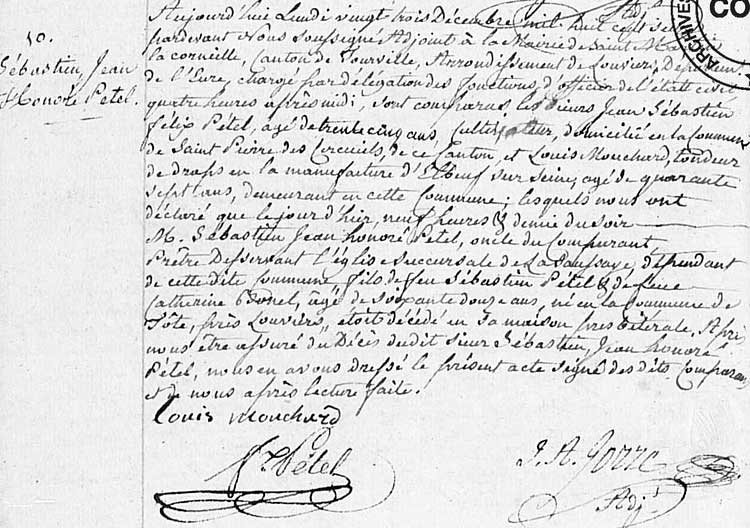 Adj.
Aujourd'hui Lundi vingt trois Décembre mil huit cent
10.
pardevant Nous soussigné Adjoint à la Mairie de Saint
Sébastien, Jean
Honoré Petel.
la corneille, Canton de Tourville, Arrondissement de Louviers, Départem.
de l'Eure, chargé par délégation des fonctions d'officier de l'état civil
quatre heures après midi, sont comparus les Sieurs Jean Sébastien
félix Pétel, agé de trente cinq ans, Cultivateur, domicilié en la Commune
de Saint Pierre des Cercueils, de ce Canton, et Louis Mouchard, tondeur
de draps en la manufacture d'Elbeuf sur Seine, agé de quarante
sept ans, demeurant en cette Commune; lesquels nous ont
déclaré que le jour d'hier, neuf heures & demie du soir
M. Sébastien Jean honoré Petel, oncle du Comparant,
Prêtre Desservant l'église succursale de La Saussaye, dépendant
de cette dite Commune, fils de feu Sébastien Pétel & de
Catherine agé de soixante douze ans, né en la Commune de
Tôte, près Louviers, etoit décédé en sa maison presbiterale. Après
nous être assuré du Décès dudit sieur Sébastien, Jean honoré
Pétel, nous en avons dressé le présent acte signé des dits Comparans
et de nous après lecture faite.
Louis mouchard
Pétel
J. A.
Adj.
ARCHIVES
CO